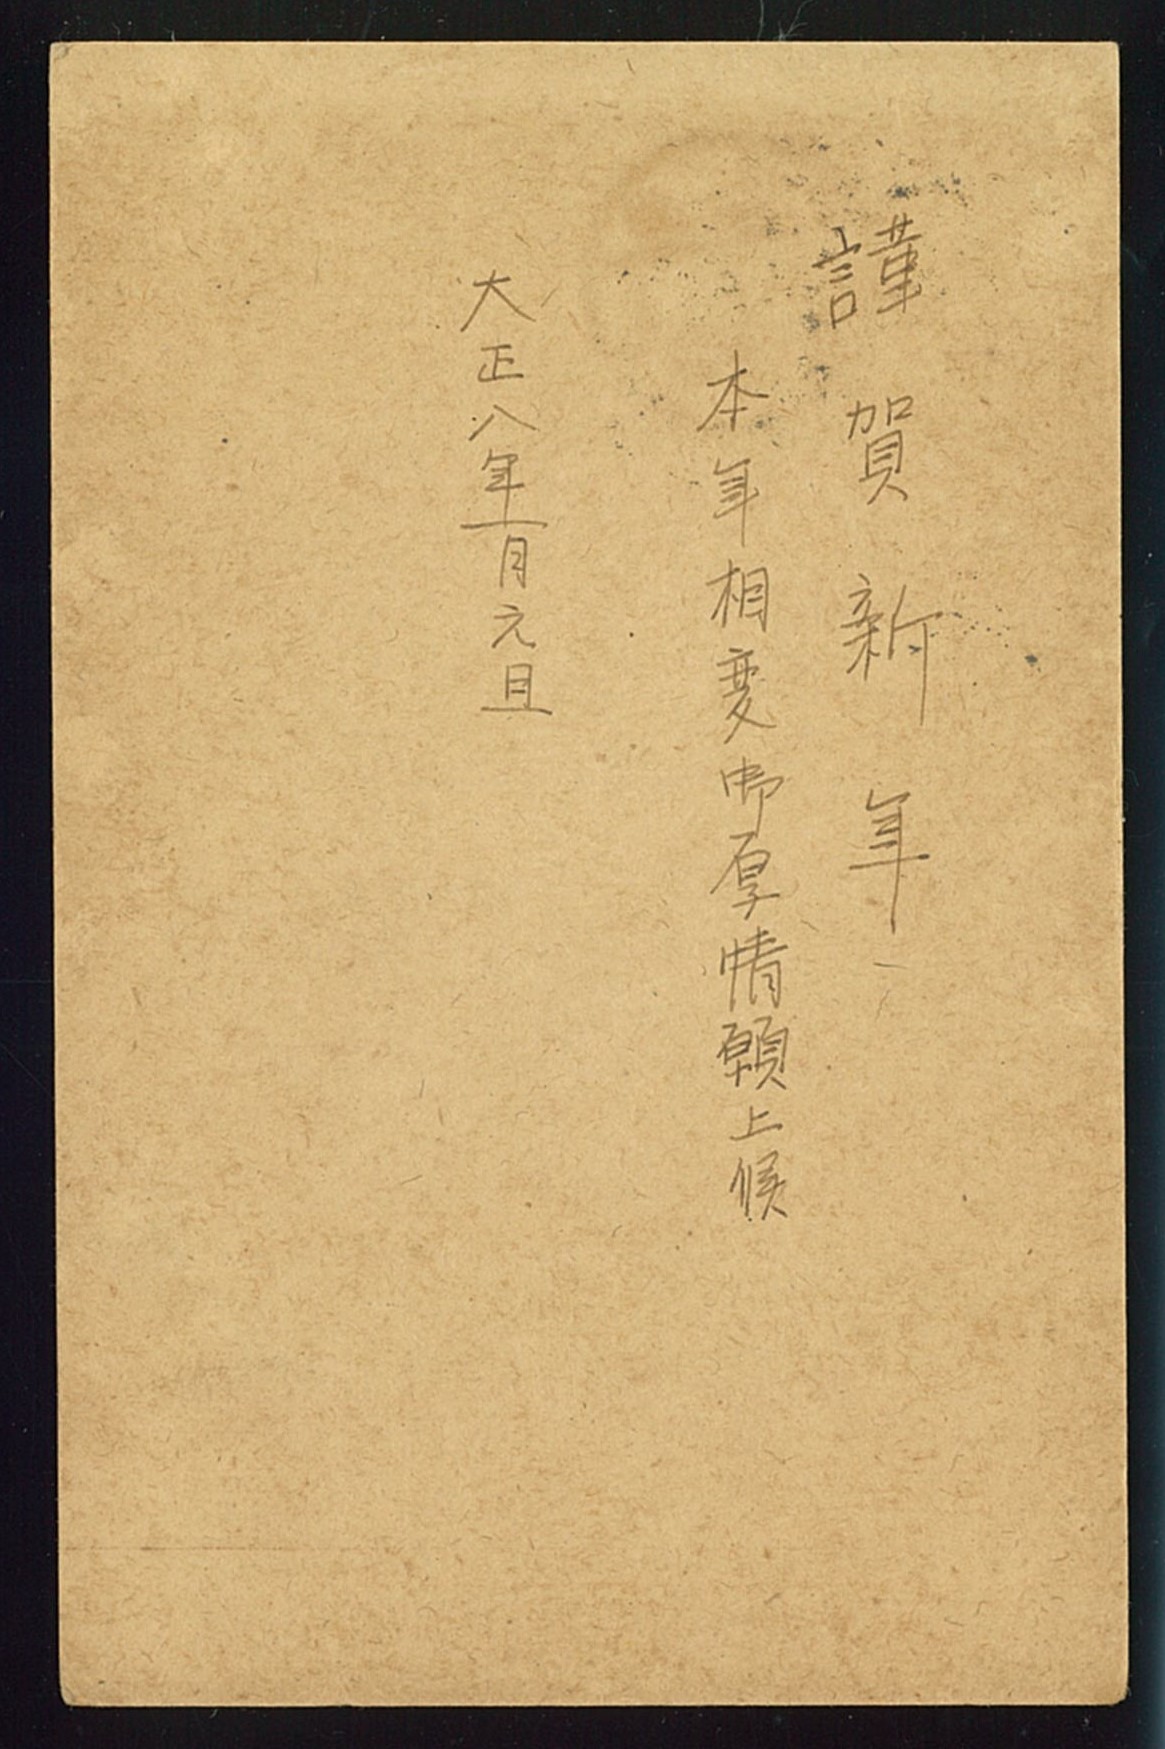 謹賀新年
本年相変御厚情願上候
大正八年一月元旦